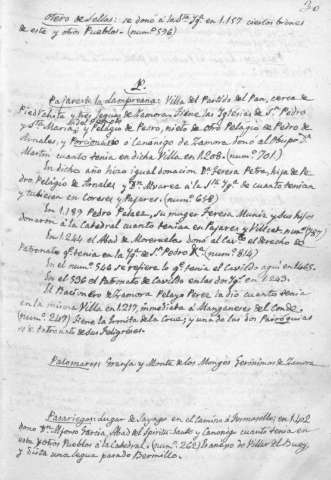 30
Otero de Sellas: se donó a la Sta. Igª. en 1.157 ciertos bienes
de este y otros Pueblos. (numº. 596)
P.
Pajares de la Lampreana: Villa del Partido del Pan, cerca de
Piedrahita y tres leguas de Zamora. Tiene las Iglesias de Sn. Pedro
y Sta. Maria; Pelagio de Pedro, nieto de otro Pelagio de Pedro de
Fornales, y Porcionero o Canonigo de Zamora, dono al Obispo Dn.
Martin cuanto tenia en dicha Villa en 1.208. (numº. 701.)
En dicho año hizo igual donacion Dª. Teresa Petra, hija de Pe-
dro Pelagio de Fornales y Dª. Mayor a la Sta. Igª. de cuanto tenian
y tubiesen en Coreses y Pajares. (numº. 698)
En 1.189 Pedro Pelaez, su muger Teresa Muñiz y sus hijos
donaron a la Catedral cuanto tenian en Pajares y Villa (numº. 787)
En 1.244 el Abad de Moreruela donó al Cavdo. el derecho de
Patronato qe. tenia en la Igª. de Sn. Pedro (numº. 814)
En el num. 546 se refiere lo qe. tenia el Cavildo aqui en 1.465.
En el 536 el Patronato de Cavildo en las dos Igs. en 1.243.
El Racionero de Zamora Pelayo Perez la dio cuanto tenia
en la misma Villa en 1.217, inmediata a Manganeses del Conde
(num. 247) Tiene la Ermita de la Cruz; y una de las dos Parroquias
es de Patronato de sus Feligreses.
Palomares: Granja y Monte de los Monges Gerónimos de Zamora
Pasariegos: Lugar de Sayago en el camino a Fermoselle; en 1.402
dono Dn. Alfonso Garcia, Abad del Spiritu Santo y Canonigo cuanto tenia en
este y otros Pueblos a la Catedral. (num. 262) Es anejo de Villar del Buey
y dista una legua pasado Bermillo.